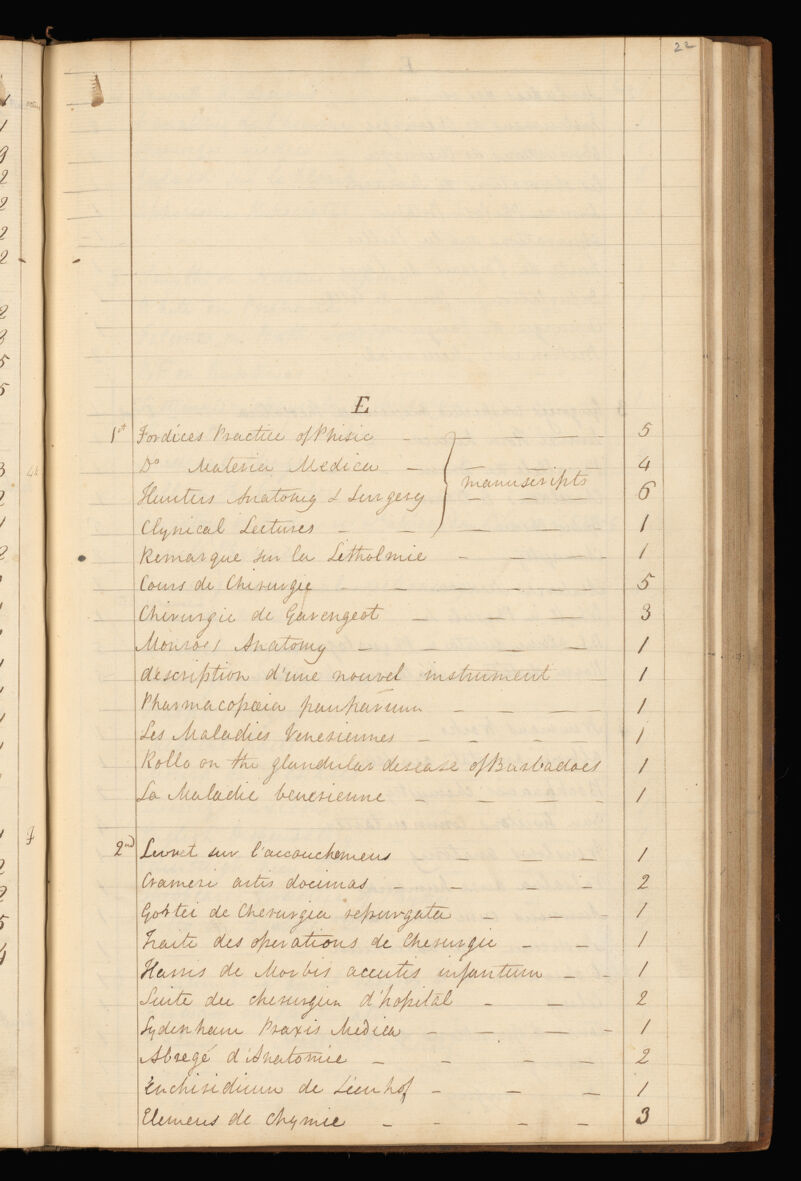 22
E
1st Fordices Practice of Phisic - - - - 5
Do Materia Medica - - - - 4
Hunters Anatomy & Surgery manuscripts - - - 6
Clynical Lectures - - - - - 1
Remarque sur la Litholmie - - - 1
Cours de Chirurgie - - - - - 5
Chirurgie de Garengeot - - - - 3
Monroes Anatomy - - - - - 1
description d'une nouvel instrument - 1
Pharmacopœia pauparum - - - 1
Les Maladies Veneriennes - - - - 1
Rollo on the glandular desease of Barbadoes 1
La Maladie benerienne - - - - 1
2nd Levret sur l'accouchemens - - 1
Crameri artis docimas - - - - 2
Gortei de Cherurgia repurgata - - - 1
Traite des operations de Cherurgie - - 1
Harris de Morbis accutis infantum - - 1
Suite du cherurgien d'hopital - - 2
Sydenham Praxis Medica - - - - 1
Abregé d'Anatomie - - - - 2
Enchiridium de - - - 1
Elemens de Chymie - - - - 3